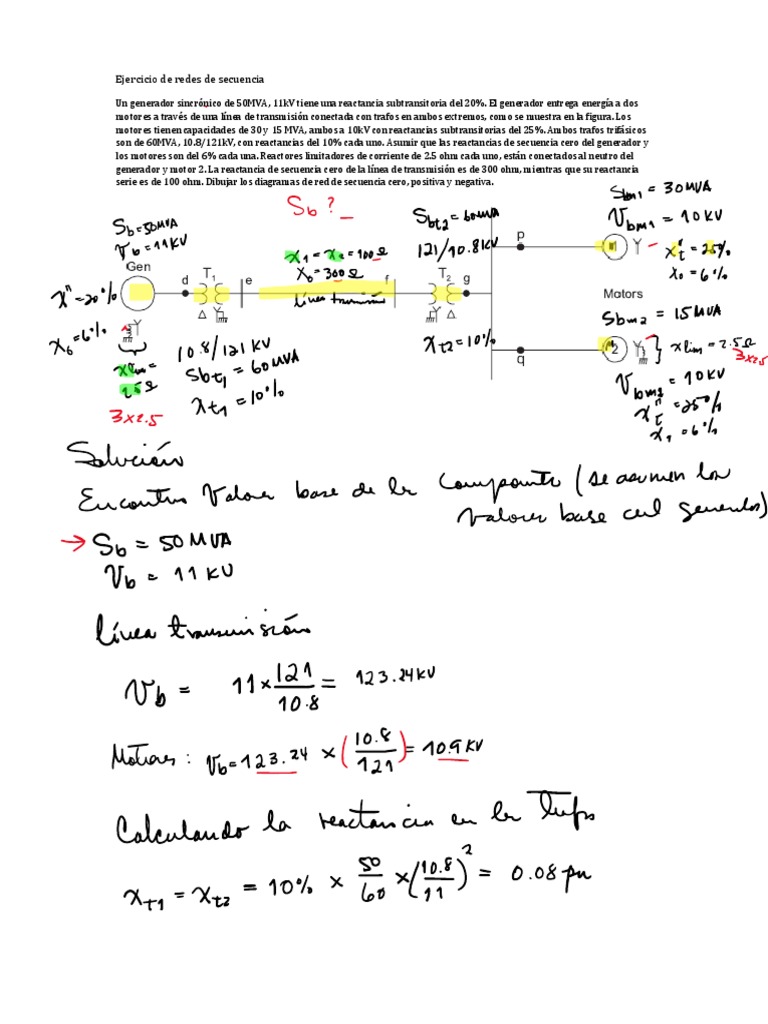 Ejercicio de redes de secuencia
Un generador sincrónico de 50MVA, 11kV tiene una reactancia subtransitoria del 20%. El generador entrega energía a dos
motores a través de una línea de transmisión conectada con trafos en ambos extremos, como se muestra en la figura. Los
motores tienen capacidades de 30 y 15 MVA, ambos a 10kV con reactancias subtransitorias del 25%. Ambos trafos trifásicos
son de 60MVA, 10.8/121kV, con reactancias del 10% cada uno. Asumir que las reactancias de secuencia cero del generador y
los motores son del 6% cada una. Reactores limitadores de corriente de 2.5 ohm cada uno, están conectados al neutro del
generador y motor 2. La reactancia de secuencia cero de la línea de transmisión es de 300 ohm, mientras que su reactancia
serie es de 100 ohm. Dibujar los diagramas de red de secuencia cero, positiva y negativa.
Sb ?
Sb = 50MVA
Vb = 11KV
x1 = x2 = 100Ω
x0 = 300Ω
línea transmisión
Sbt2 = 60MVA
121/10.8KV
Sbm1 = 30MVA
Vbm1 = 10KV
x"t = 25%
x0 = 6%
Gen
d
T1
e
f
T2
g
p
q
M1
M2
Motors
Δ Y
Y Δ
Y
Y
x" = 20%
x0 = 6%
xlim =
2.5Ω
3x2.5
10.8/121 KV
Sbt1 = 60MVA
xt1 = 10%
xt2 = 10%
Sbm2 = 15MVA
xlim = 2.5Ω
3x2.5
Vbm2 = 10KV
x"t = 25%
= 6%
Solución
Encontrar Valores base de los componentes (se asumen los
valores base del generador)
→ Sb = 50MVA
Vb = 11KV
línea transmisión
Vb = 11 x 121/10.8 = 123.24KV
Motores: Vb = 123.24 x (10.8/121) = 10.9KV
Calculando la reactancia en los Trafos
xt1 = xt2 = 10% x 50/60 x (10.8/11)² = 0.08 pu